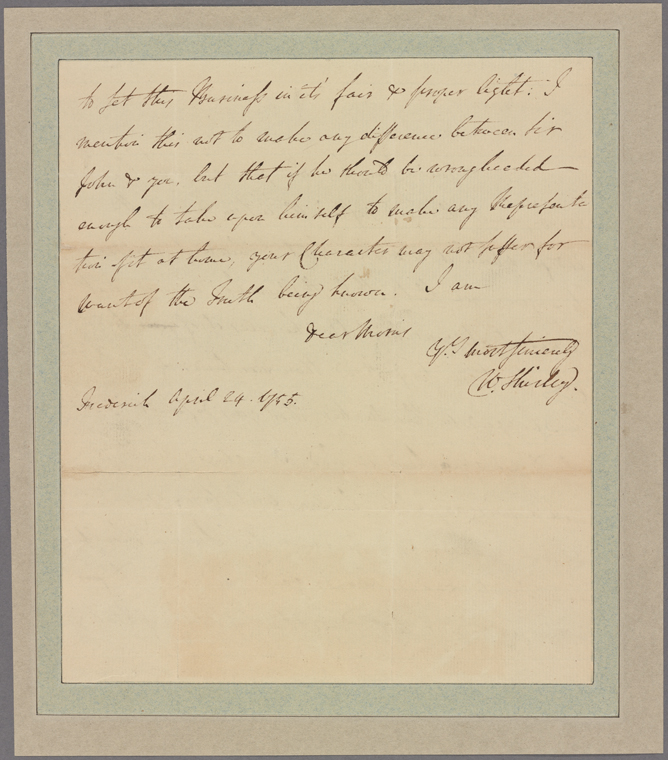 to set this Business in it's fair & proper light: I
mention this not to make any difference between Sir
John & you, but that if he should be wrongheaded
enough to take upon himself to make any Representa
tion of it at home, your Character may not suffer for
want of the Truth being known. I am
Dear Morris
Yrs most sincerely
W. Shirley.
Frederick April 24. 1755.